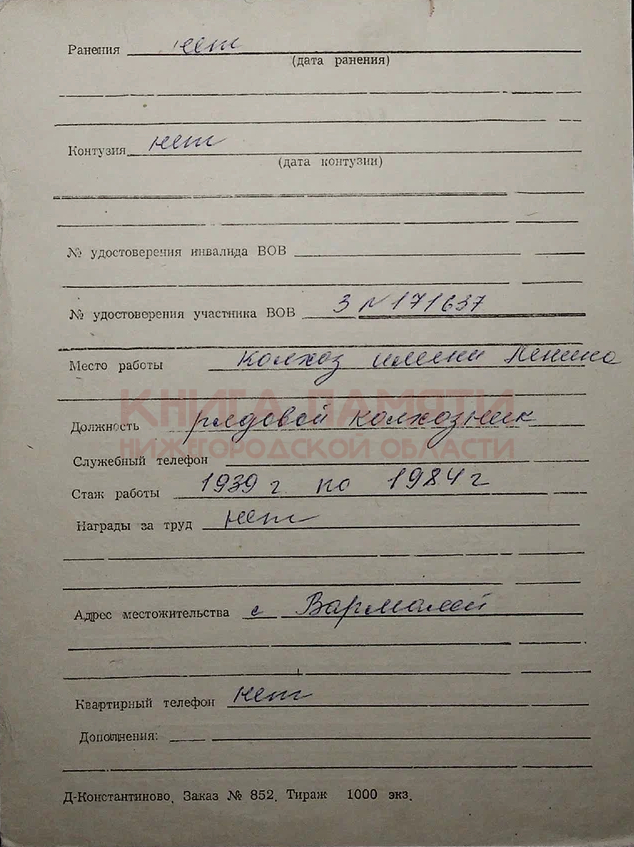 Ранения нет
(дата ранения)
Контузия нет
(дата контузии)
№ удостоверения инвалида ВОВ
№ удостоверения участника ВОВ З №171637
Место работы колхоз имени Ленина
КНИГА ПАМЯТИ
Должность рядовой колхозник
НИЖЕГОРОДСКОЙ ОБЛАСТИ
Служебный телефон
Стаж работы 1939 г по 1984 г
Награды за труд нет
Адрес местожительства с Вармалей
Квартирный телефон нет
Дополнения:
Д-Константиново, Заказ № 852, Тираж 1000 экз.